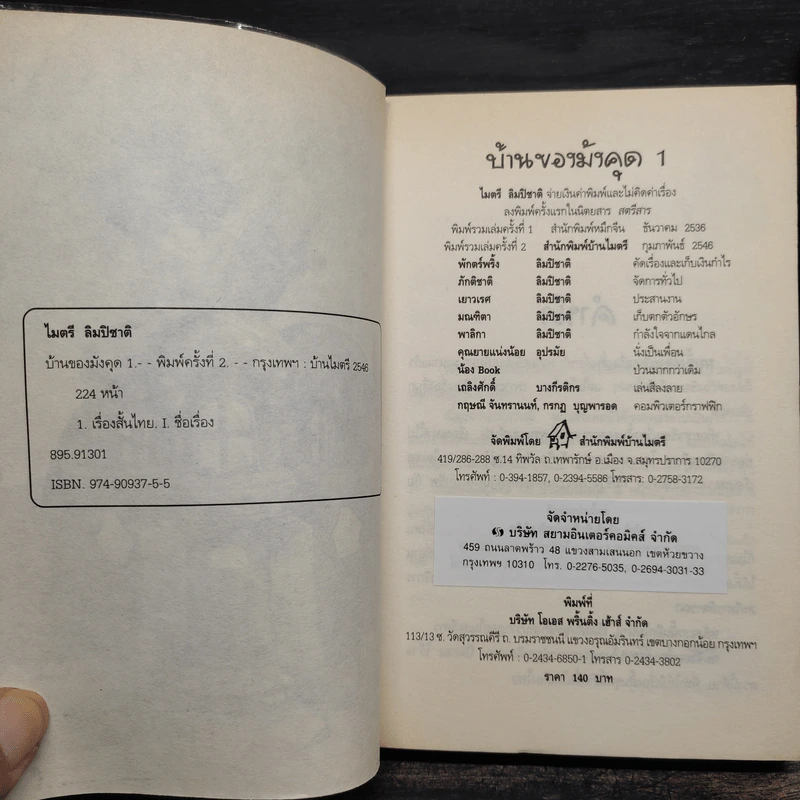 ไมตรี ลิมปิชาติ
บ้านของมังคุด 1.- - พิมพ์ครั้งที่ 2. - - กรุงเทพฯ : บ้านไมตรี 2546
224 หน้า
1. เรื่องสั้นไทย. I. ชื่อเรื่อง
895.91301
ISBN. 974-90937-5-5
บ้านของมังคุด 1
ไมตรี ลิมปิชาติ จ่ายเงินค่าพิมพ์และไม่คิดค่าเรื่อง
ลงพิมพ์ครั้งแรกในนิตยสาร สตรีสาร
พิมพ์รวมเล่มครั้งที่ 1 สำนักพิมพ์หมึกจีน ธันวาคม 2536
พิมพ์รวมเล่มครั้งที่ 2 สำนักพิมพ์บ้านไมตรี กุมภาพันธ์ 2546
พักตร์พริ้ง ลิมปิชาติ คัดเรื่องและเก็บเงินกำไร
ภักติชาติ ลิมปิชาติ จัดการทั่วไป
เยาวเรศ ลิมปิชาติ ประสานงาน
มณฑิตา ลิมปิชาติ เก็บตกตัวอักษร
พาลิกา ลิมปิชาติ กำลังใจจากแดนไกล
คุณยายแน่งน้อย อุปรมัย นั่งเป็นเพื่อน
น้อง Book ป่วนมากกว่าเดิม
เถลิงศักดิ์ บางกีรติกร เล่นสีลงลาย
กฤษณี จันทรานนท์, กรกฎ บุญพารอด คอมพิวเตอร์กราฟฟิก
จัดพิมพ์โดย สำนักพิมพ์บ้านไมตรี
419/286-288 ซ.14 ทิพวัล ถ.เทพารักษ์ อ.เมือง จ.สมุทรปราการ 10270
โทรศัพท์ : 0-394-1857, 0-2394-5586 โทรสาร: 0-2758-3172
จัดจำหน่ายโดย
บริษัท สยามอินเตอร์คอมิคส์ จำกัด
459 ถนนลาดพร้าว 48 แขวงสามเสนนอก เขตห้วยขวาง
กรุงเทพฯ 10310 โทร. 0-2276-5035, 0-2694-3031-33
พิมพ์ที่
บริษัท โอเอส พริ้นติ้ง เฮ้าส์ จำกัด
113/13 ซ. วัดสุวรรณคีรี ถ. บรมราชชนนี แขวงอรุณอัมรินทร์ เขตบางกอกน้อย กรุงเทพฯ
โทรศัพท์ : 0-2434-6850-1 โทรสาร 0-2434-3802
ราคา 140 บาท